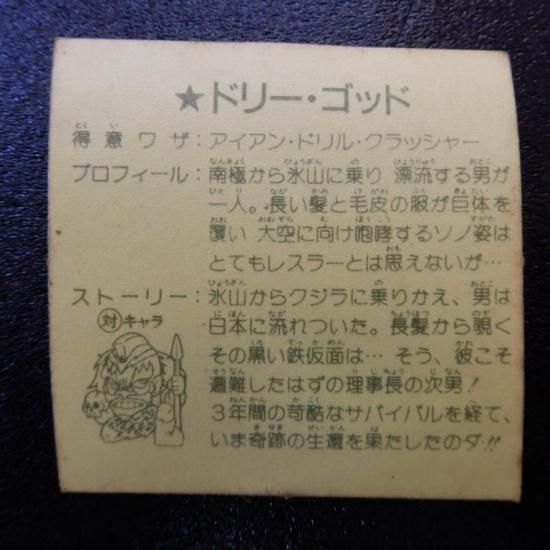 ★ドリー・ゴッド
得意ワザ：アイアン・ドリル・クラッシャー
プロフィール：南極から氷山に乗り 漂流する男が
一人。長い髪と毛皮の服が巨体を
覆い 大空に向け咆哮するソノ姿は
とてもレスラーとは思えないが…
ストーリー：氷山からクジラに乗りかえ、男は
日本に流れついた。長髪から覗く
その黒い鉄仮面は… そう、彼こそ
遭難したはずの理事長の次男！
3年間の苛酷なサバイバルを経て、
いま奇跡の生還を果たしたのダ!!
対キャラ